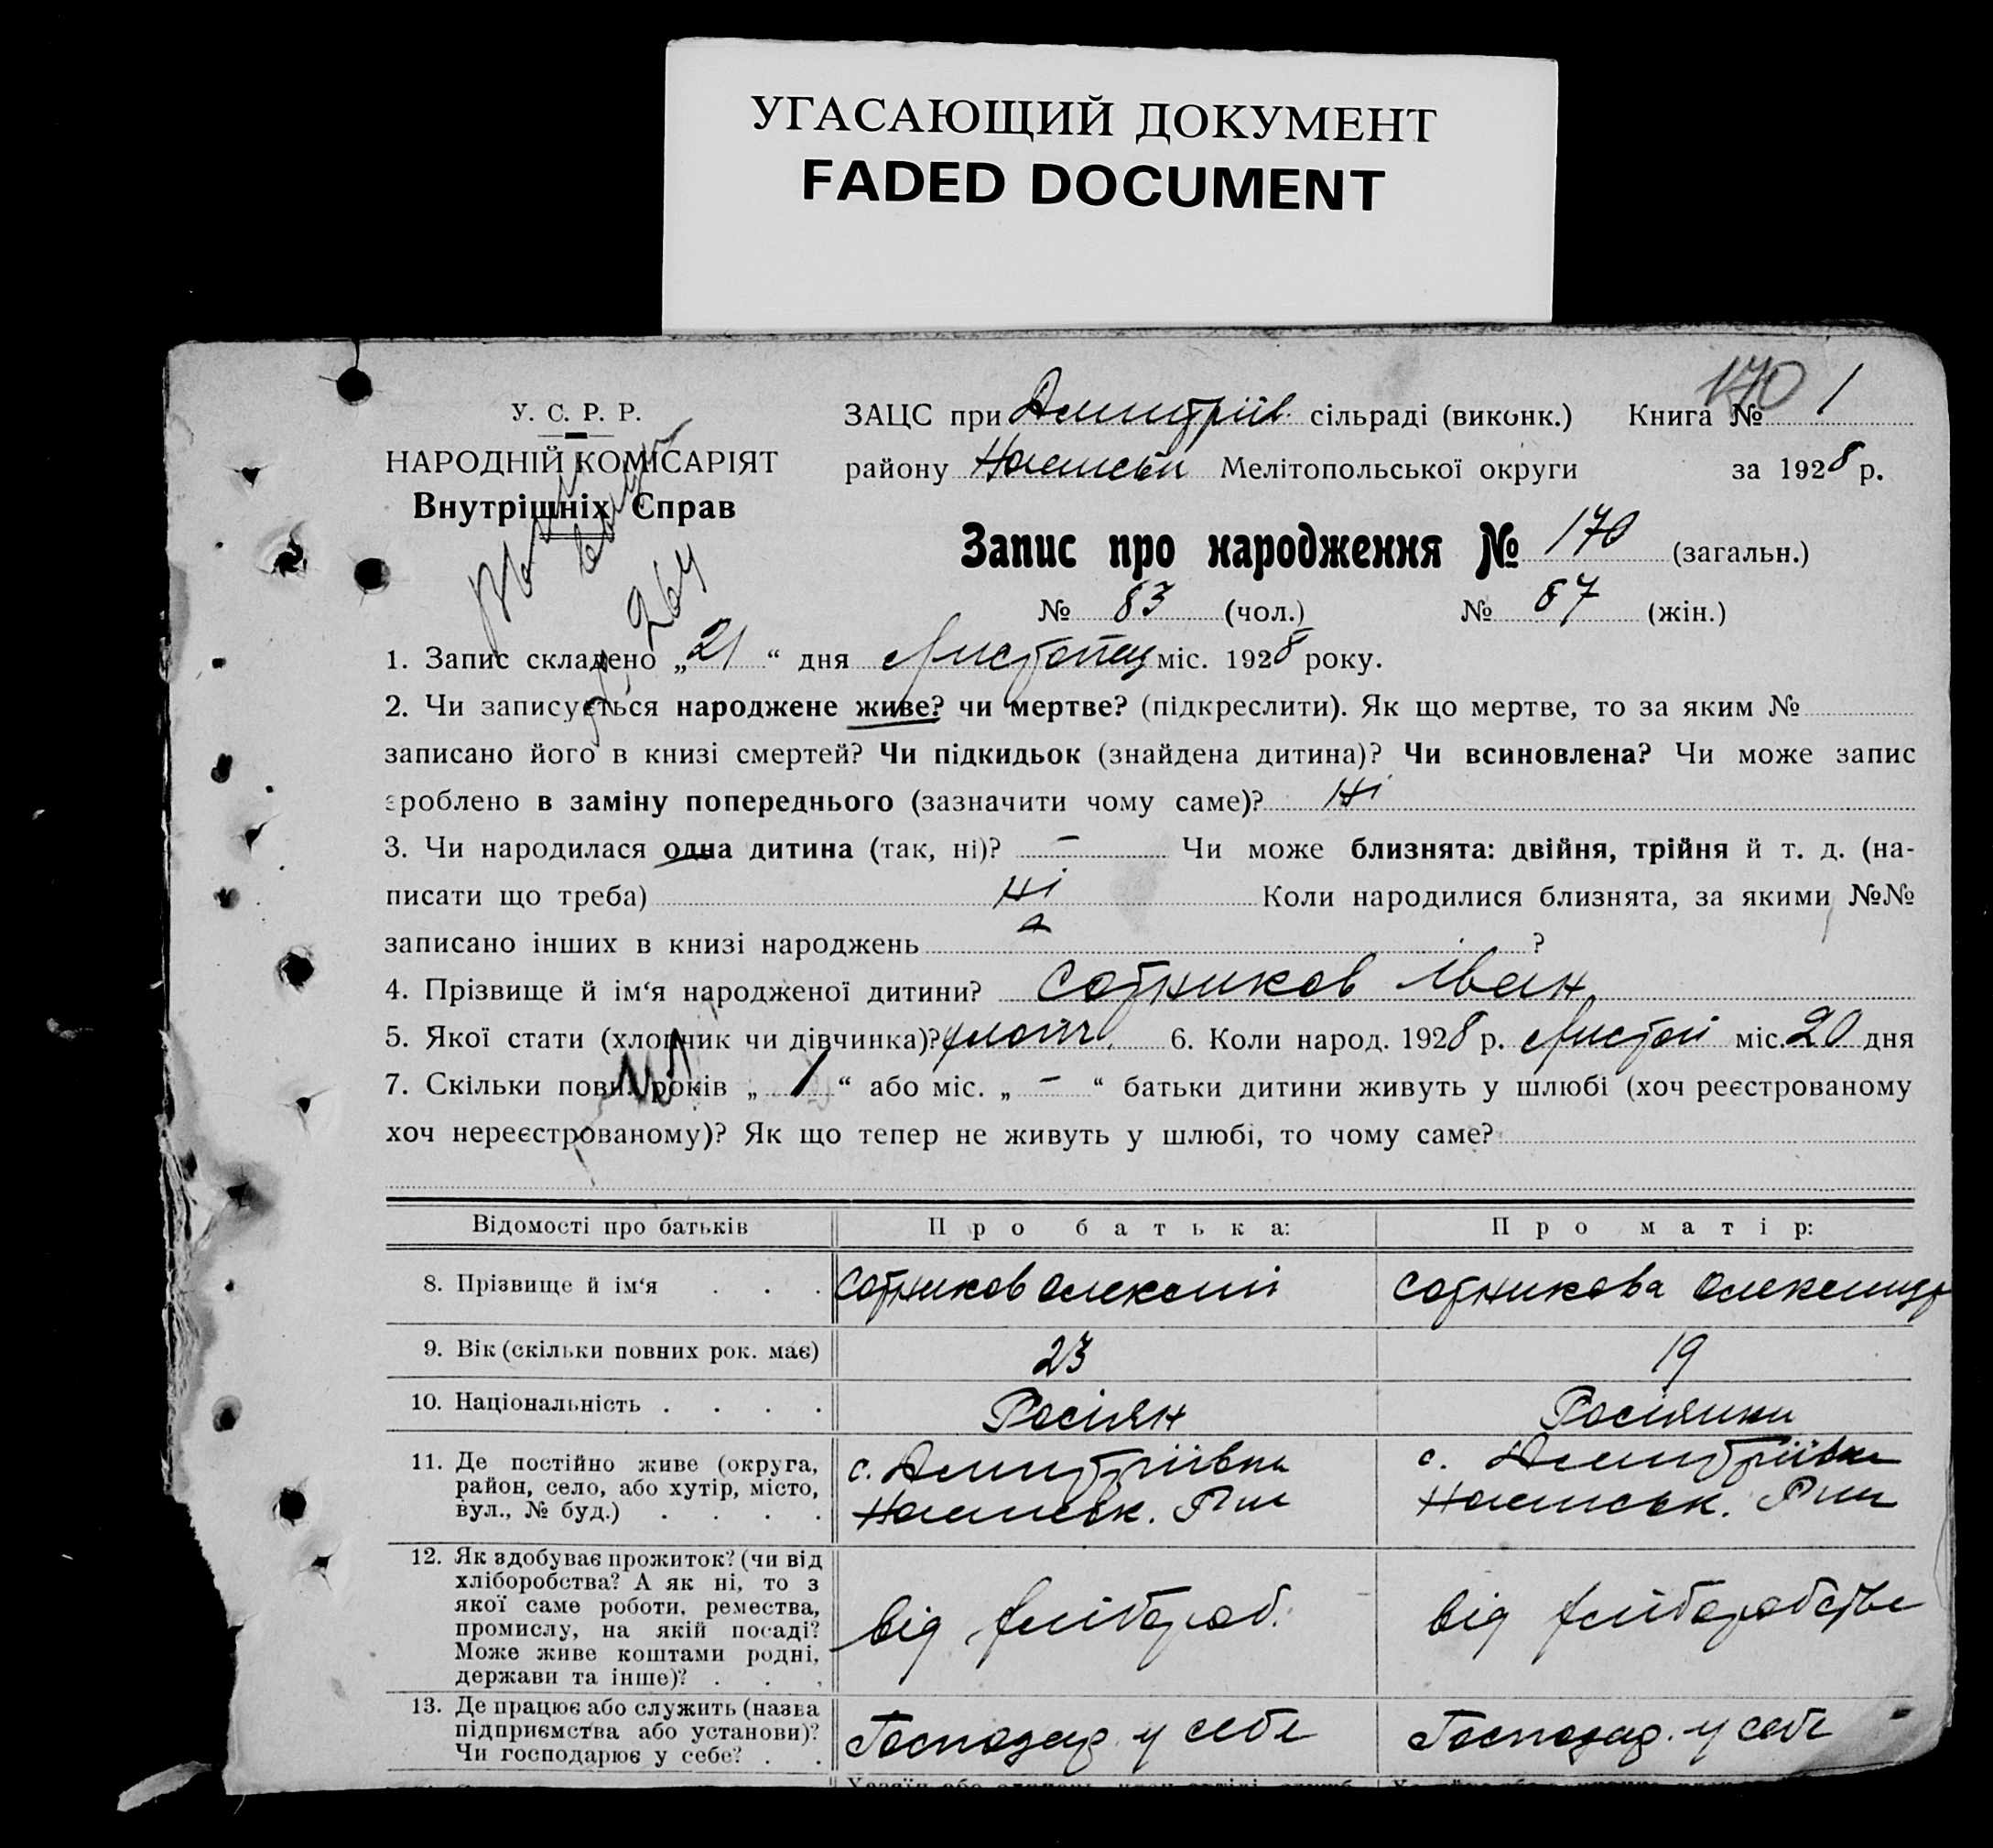 УГАСАЮЩИЙ ДОКУМЕНТ
FADED DOCUMENT
170
У. С. Р. Р.
НАРОДНІЙ КОМІСАРІЯТ
Внутрішніх Справ
264
ЗАЦС при Дмитріїв. сільраді (виконк.) Книга № 1
району Мелітопольської округи за 1928 р.
Запис про народження № 170 (загальн.)
№ 83 (чол.) № 87 (жін.)
1. Запис складено „21“ дня Листопад міс. 1928 року.
2. Чи записується народжене живе? чи мертве? (підкреслити). Як що мертве, то за яким №
записано його в книзі смертей? Чи підкидьок (знайдена дитина)? Чи всиновлена? Чи може запис
зроблено в заміну попереднього (зазначити чому саме)? Ні
3. Чи народилася одна дитина (так, ні)? – Чи може близнята: двійня, трійня й т. д. (на-
писати що треба) Ні Коли народилися близнята, за якими №№
записано інших в книзі народжень ?
4. Прізвище й ім‘я народженої дитини? Сотников Іван
5. Якої стати (хлопчик чи дівчинка)? хлопч. 6. Коли народ. 1928 р. Листоп міс. 20 дня
7. Скільки повн. років „1“ або міс. „–“ батьки дитини живуть у шлюбі (хоч реєстрованому
хоч нереєстрованому)? Як що тепер не живуть у шлюбі, то чому саме?
Відомості про батьків Про батька: Про матір:
8. Прізвище й ім‘я . . . Сотников Олексій Сотникова
9. Вік (скільки повних рок. має) 23 19
10. Національність . . . . Росіян Росіянка
11. Де постійно живе (округа,
район, село, або хутір, місто,
вул., № буд.) . . . .
с. Дмитріївка
с. Дмитріївка
12. Як здобуває прожиток? (чи від
хліборобства? А як ні, то з
якої саме роботи, ремества,
промислу, на якій посаді?
Може живе коштами родні,
держави та інше)? . . .
від хлібороб.
від хліборобства
13. Де працює або служить (назва
підприємства або установи)?
Чи господарює у себе? . .
Господар. у себе
Господар. у себе